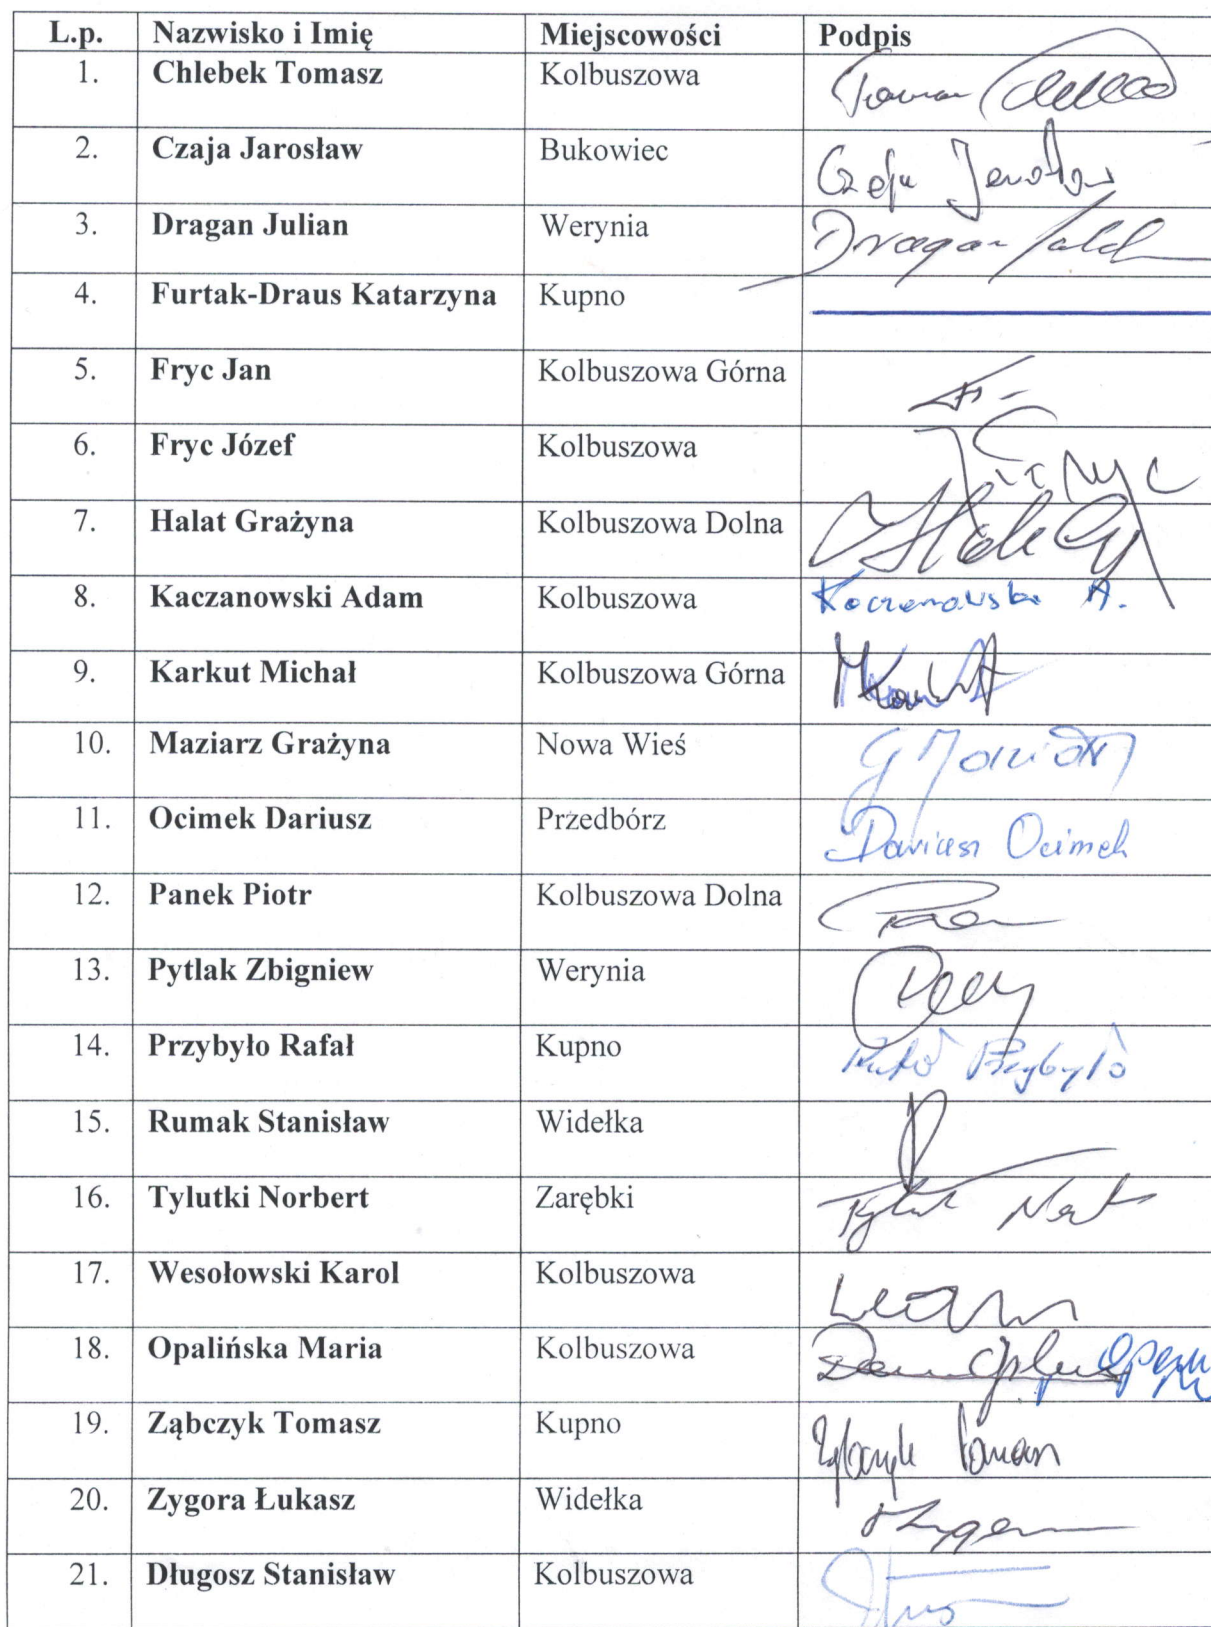 L.p. Nazwisko i Imię Miejscowości Podpis
1. Chlebek Tomasz Kolbuszowa
2. Czaja Jarosław Bukowiec Czaja Jarosław
3. Dragan Julian Werynia Dragan
4. Furtak-Draus Katarzyna Kupno
5. Fryc Jan Kolbuszowa Górna
6. Fryc Józef Kolbuszowa Fryc
7. Halat Grażyna Kolbuszowa Dolna
8. Kaczanowski Adam Kolbuszowa Kaczanowski A.
9. Karkut Michał Kolbuszowa Górna
10. Maziarz Grażyna Nowa Wieś
11. Ocimek Dariusz Przedbórz Dariusz Ocimek
12. Panek Piotr Kolbuszowa Dolna
13. Pytlak Zbigniew Werynia
14. Przybyło Rafał Kupno Rafał Przybyło
15. Rumak Stanisław Widełka
16. Tylutki Norbert Zarębki
17. Wesołowski Karol Kolbuszowa
18. Opalińska Maria Kolbuszowa
19. Ząbczyk Tomasz Kupno Ząbczyk Tomasz
20. Zygora Łukasz Widełka
21. Długosz Stanisław Kolbuszowa